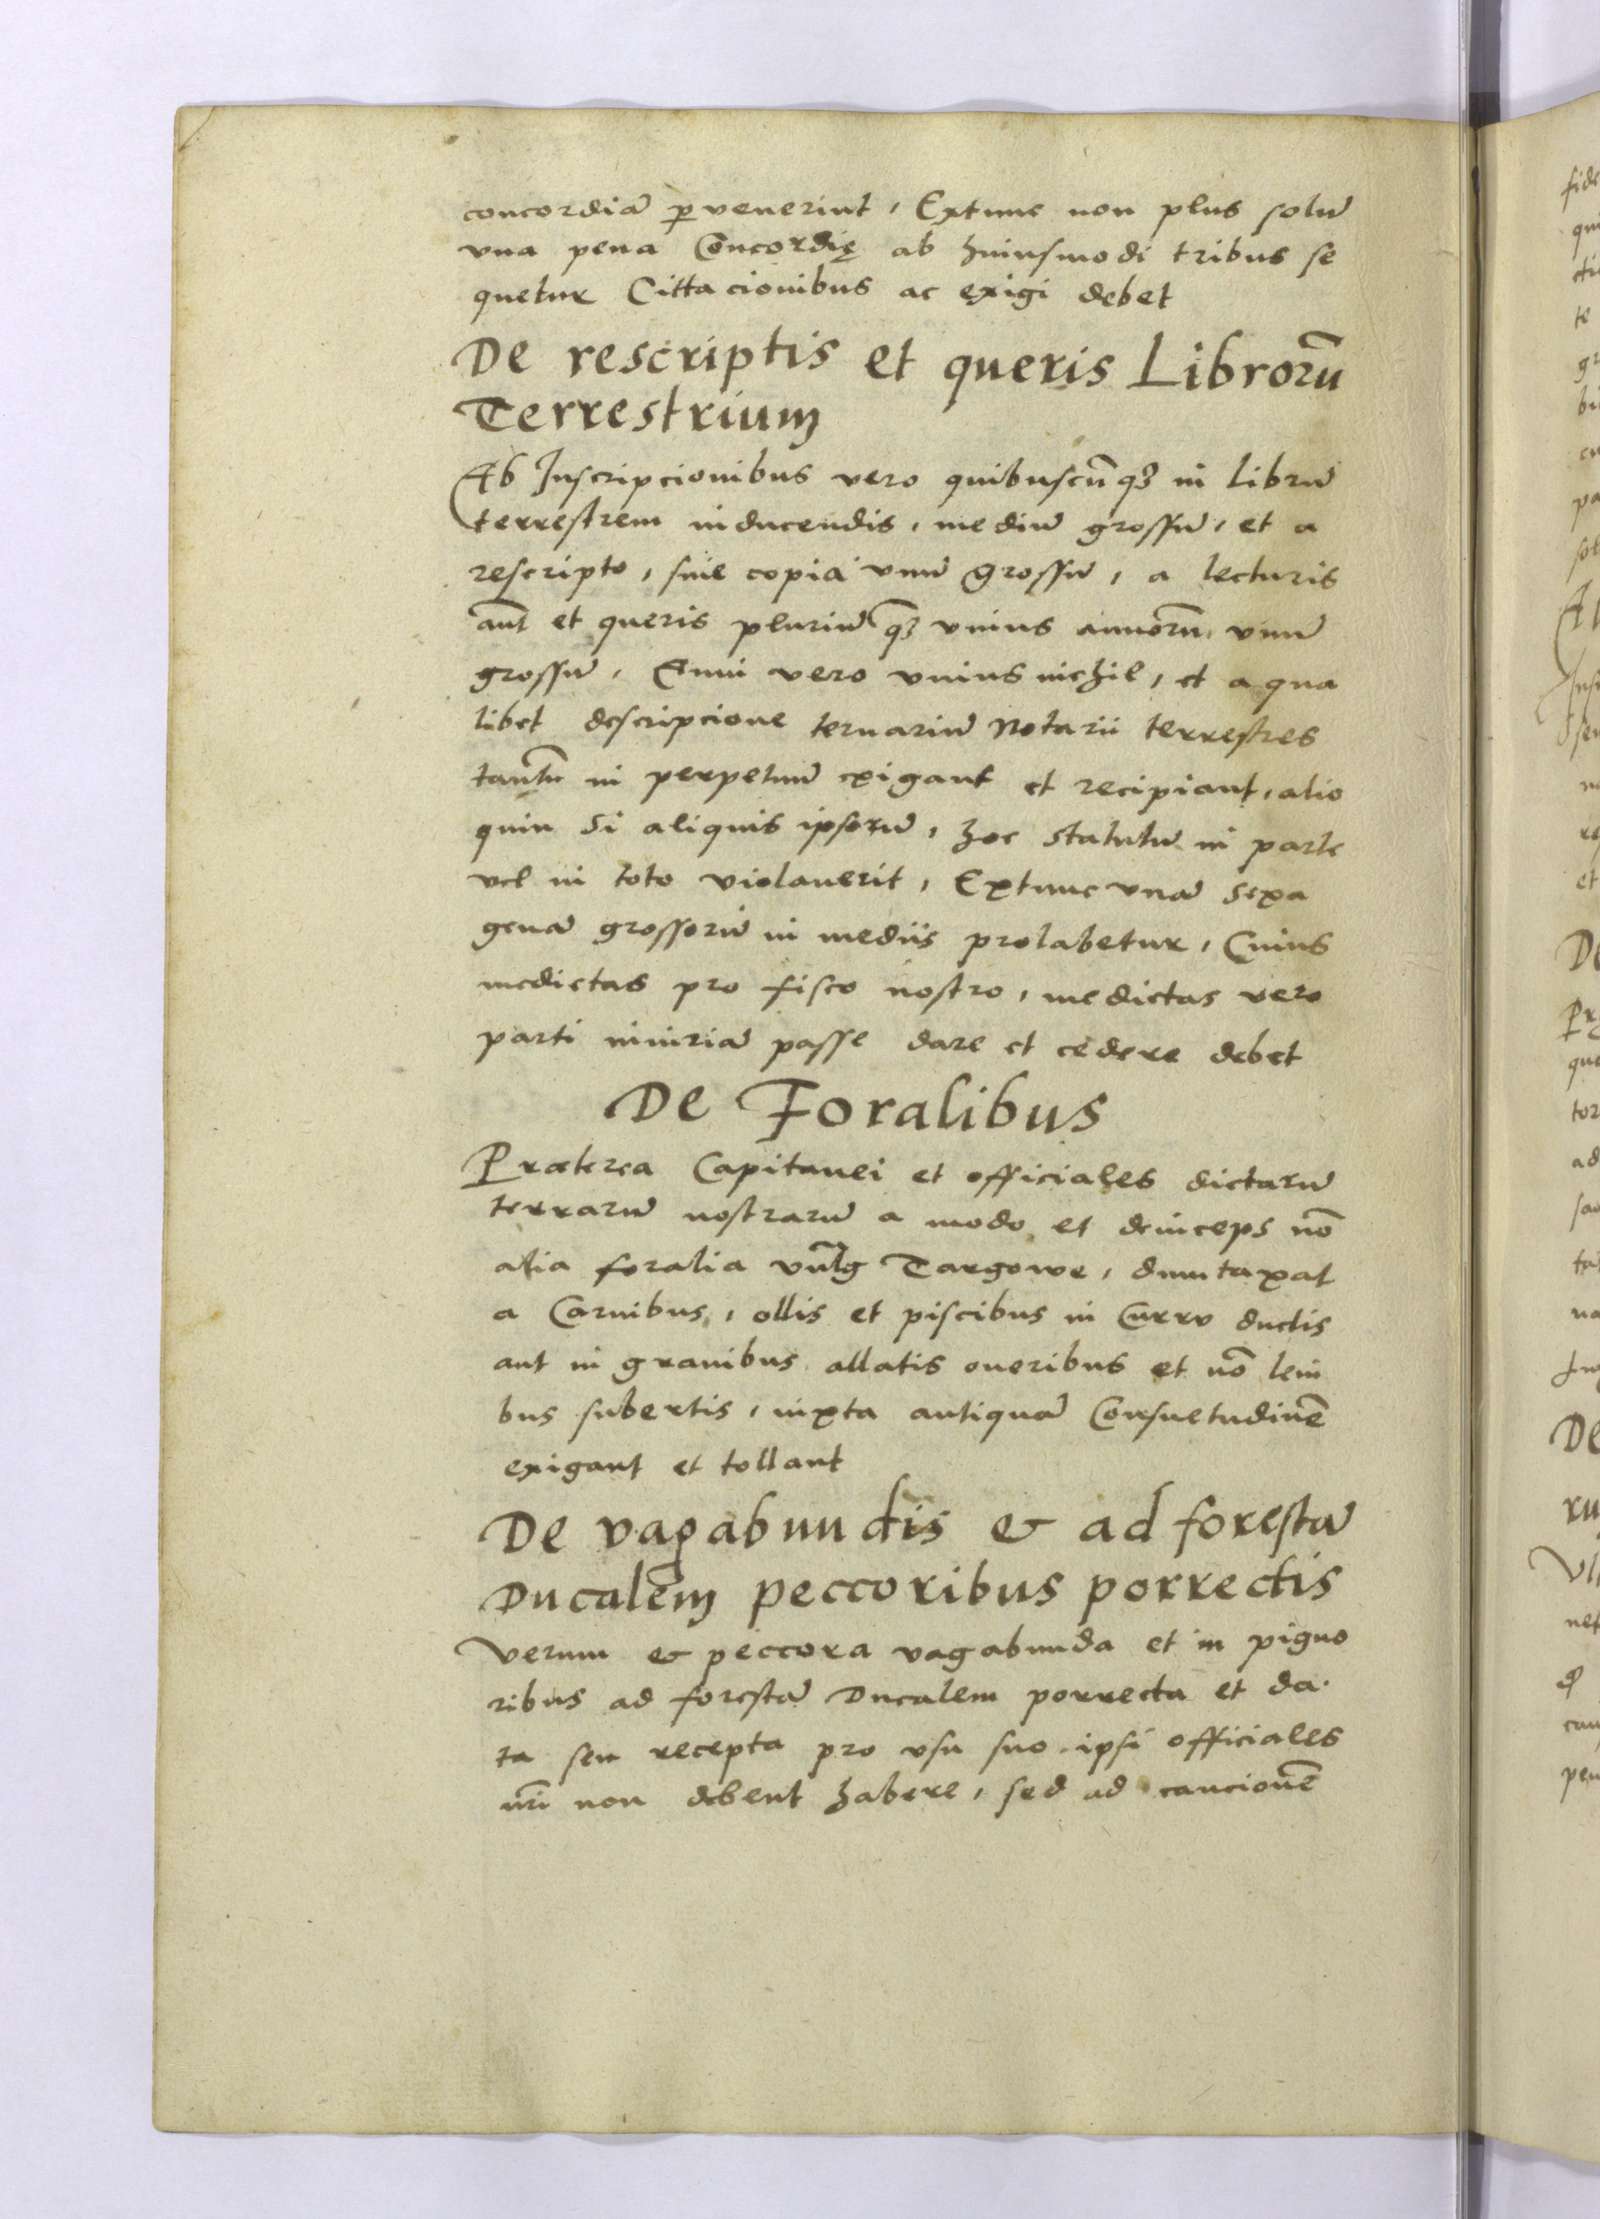 concordiā ꝑvenerint, Extunc non plus solū
vna pena Concordię ab huiusmodi tribus se
quetur Cittacionibus ac exigi debet
De rescriptis et queris Librorū
Terrestrium
Ab Inscripcionibus vero quibuscūqꝫ in librū
terrestrem inducendis, mediū grossū, et a
rescripto, siue copia vnū grossū, a lecturis
aūt et queris pluriū qꝫ vnius annorū, vnū
grossū, Anni vero vnius nichil, et a qua
libet descripcione ternariū Notarii terrestres
tantū in perpetuū exigant et recipiant, alio
quin Si aliquis ipsorū, hoc statutū in parte
vel in toto violauerit, Extunc vnā sexa
genā grossorū in mediis prolabetur, Cuius
medietas pro fisco nostro, medietas vero
parti iniuriā passe dare et cedere debet
De Foralibus
Præterea Capitanei et officiales dictarū
terrarū nostrarū a modo et deinceps nō
alia foralia vūlg Targowe, duntaxat
a Carnibus, ollis et piscibus in Curru ductis
aut in grauibus allatis oneribus et nō leui
bus subertis, iuxta antiquā Consuetudinē
exigant et tollant
De vagabundis & ad forestā
Ducalem peccoribus porrectis
Verum & peccora vagabunda et in pigno
ribus ad forestā Ducalem porrecta et da
ta seu recepta pro vsu suo ipsi officiales
nr̄i non debent habere, sed ad caucionē